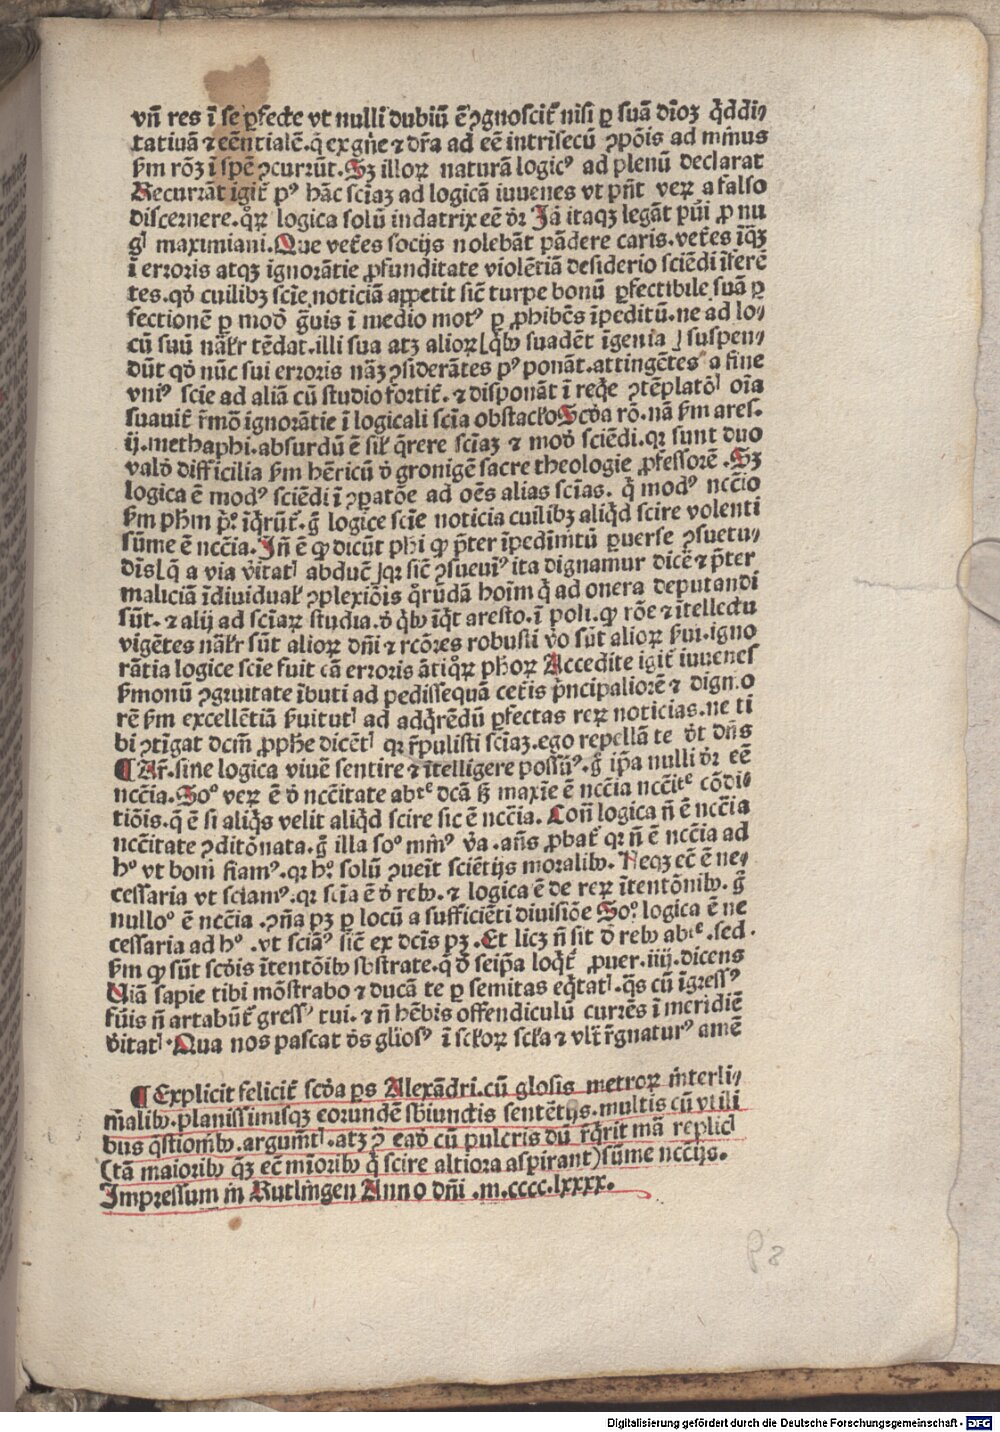 vñ res ī se ꝑfecte vt nulli dubiū ē ꝯgnoscit᷑ nisi ꝑ suā dīoꝫ q̇ddi⸗
tatiuā ⁊ eēntialē. q̄ ex gn̄e ⁊ dr̄a ad eē intrīsecū ꝯpōis ad minus
ẜm rōꝫ ī spē ꝯcurrūt. Sꝫ illoꝝ naturā logicꝰ ad plenū declarat
Recurrāt igit᷑ pꝰ hāc scīaꝫ ad logicā iuuenes vt pn̄t veꝝ a falso
discernere. qͣꝝ logica solū indatrix eē dr̄ Jā itaqꝫ legāt pūi ꝓ nu
gl maximiani. Que vet̄es socijs nolebāt pādere caris. vet̄es īq̄ꝫ
ī erroris atqꝫ ignorātie ꝓfunditate violētiā desiderio sciēdi īferē
tes. qď cuilibꝫ scīe noticiā appetit sic̄ turpe bonū ꝑfectibile suā ꝑ
fectionē ꝑ mod̄ g̃uis ī medio motꝰ ꝑ ꝓhibēs īpeditū. ne ad lo⸗
cū suū nāłr tēdat. illi sua atꝫ alioꝝ [q̇bꝰ suadēt īgenia] suspen⸗
dūt qď nūc sui erroris nāꝫ ꝯsiderātes pꝰponāt. attingētes a fine
vniꝰ scīe ad aliā cū studio fortit᷑. ⁊ disponāt ī req̇e ꝯtēplatōl oīa
suauit᷑ r̄mō ignorātie ī logicali scīa obstacło Scďa rō. nā ẜm ares.
ij. methaphi. absurdū ē siĺ q̄rere scīaꝫ ⁊ mod̄ sciēdi. qꝛ sunt duo
vald̄ difficilia ẜm hēricū d̄ gronigē sacre theologie ꝓfessorē. Sꝫ
logica ē modꝰ sciēdi ī ꝯꝑatōe ad oēs alias scīas. q̇ modꝰ nccīo
ẜm pħm pº. īq̇rūt᷑. g̊ logice scīe noticia cuilibꝫ aliq̇d scire volenti
sūme ē nccīa. Jn̄ ē ꝙ dicūt phi ꝙ p̄ter īpedīmtū ꝑuerse ꝯsuetu⸗
dīs [q̄ a via v̇itatl abduc̄] qꝛ sic̄ ꝯsueuiꝰ ita dignamur dicē ⁊ p̄ter
maliciā īdiuidual ꝯplexiōis q̊rūdā hoīm q̇ ad onera deputandi
sūt. ⁊ alij ad scīaꝝ studia. d̄ q̇bꝰ īq̇t aresto. ī poli. ꝙ rōe ⁊ ītellectu
vigētes nāłr sūt alioꝝ dn̄i ⁊ rc̄ōres robusti v̊o sūt alioꝝ ẜui. igno
rātia logice scīe fuit cā erroris ātiq̊ꝝ pħoꝝ Accedite igit᷑ iuuenes
ẜmonū ꝯgruitate ībuti ad pedissequā cet̄is p̄ncipaliorē ⁊ dignio
rē ẜm excellētiā ẜuitutl ad adq̇rēdū ꝑfectas reꝝ noticias. ne ti
bi ꝯtīgat dcm̄ ꝓphe dicētl qꝛ r̄pulisti scīaꝫ. ego repellā te v̊t dn̄s
¶ Ar̄. sine logica viuē sentire ⁊ ītelligere possūꝰ. g̊ ip̄a nulli dr̄ eē
nccīa. Soº veꝝ ē d̄ nccītate abtᵉ dcā ꝫ maxīe ē nccīa nccītᵉ cōdi⸗
tiōis. q̄ ē si aliq̇s velit aliq̇d scire sic ē nccīa. Con̄ logica n̄ ē nccīa
nccītate ꝯditōnata. g̊ illa soº mīꝰ v̇a. an̄s ꝓbat᷑ qꝛ n̄ ē nccīa ad
hº vt boni fiamꝰ. qꝛ hº solū ꝯueīt sciētijs moralibꝰ. Neqꝫ ec̄ ē ne⸗
cessaria vt sciamꝰ. qꝛ scīa ē d̄ rebꝰ. ⁊ logica ē de reꝝ ītentōnibꝰ. g̊
nulloº ē nccīa. ꝯn̄a pꝫ ꝑ locū a sufficiēti diuisiōe Soº. logica ē ne
cessaria ad hº. vt sciāꝰ sic̄ ex dcīs pꝫ. Et licꝫ n̄ sit d̄ rebꝰ abtᵉ. sed.
ẜm ꝙ sūt scďis ītentōibꝰ sbstrate. q̄ d̄ seip̄a loq̇t᷑ ꝓuer. iiij. dicens
Uiā sapie tibi mōstrabo ⁊ ducā te ꝑ semitas eq̇tatl. q̄s cū īgressꝰ
fūis n̄ artabūt᷑ gressꝰ tui. ⁊ n̄ hēbis offendiculū currēs ī meridiē
v̇itatl. Qua nos pascat ds̄ gliosꝰ ī scłoꝝ scła ⁊ vlt̄ r̄gnaturꝰ amē
¶ Explicit felicit᷑ scďa ꝑs Alexādri. cū glosis metroꝝ interli⸗
nialibꝰ. planissimisqꝫ eorundē sbiunctis sentētijs. multis cū vtili
bus q̄stiōibꝰ. argumtl. atꝫ ꝯ eaď cū pulcris dū r̄q̇rit mā replicl
(tā maioribꝰ q̄ꝫ ec̄ mīoribꝰ q̇ scire altiora aspirant) sūme nccijs.
Jmpressum in Rutlingen Anno dn̄i .m.cccc.lxxxx.
P8
Digitalisierung gefördert durch die Deutsche Forschungsgemeinschaft - DFG